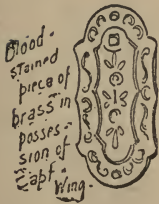 Blood-
stained
piece of
brass in
posses-
sion of
Capt.
Wing.